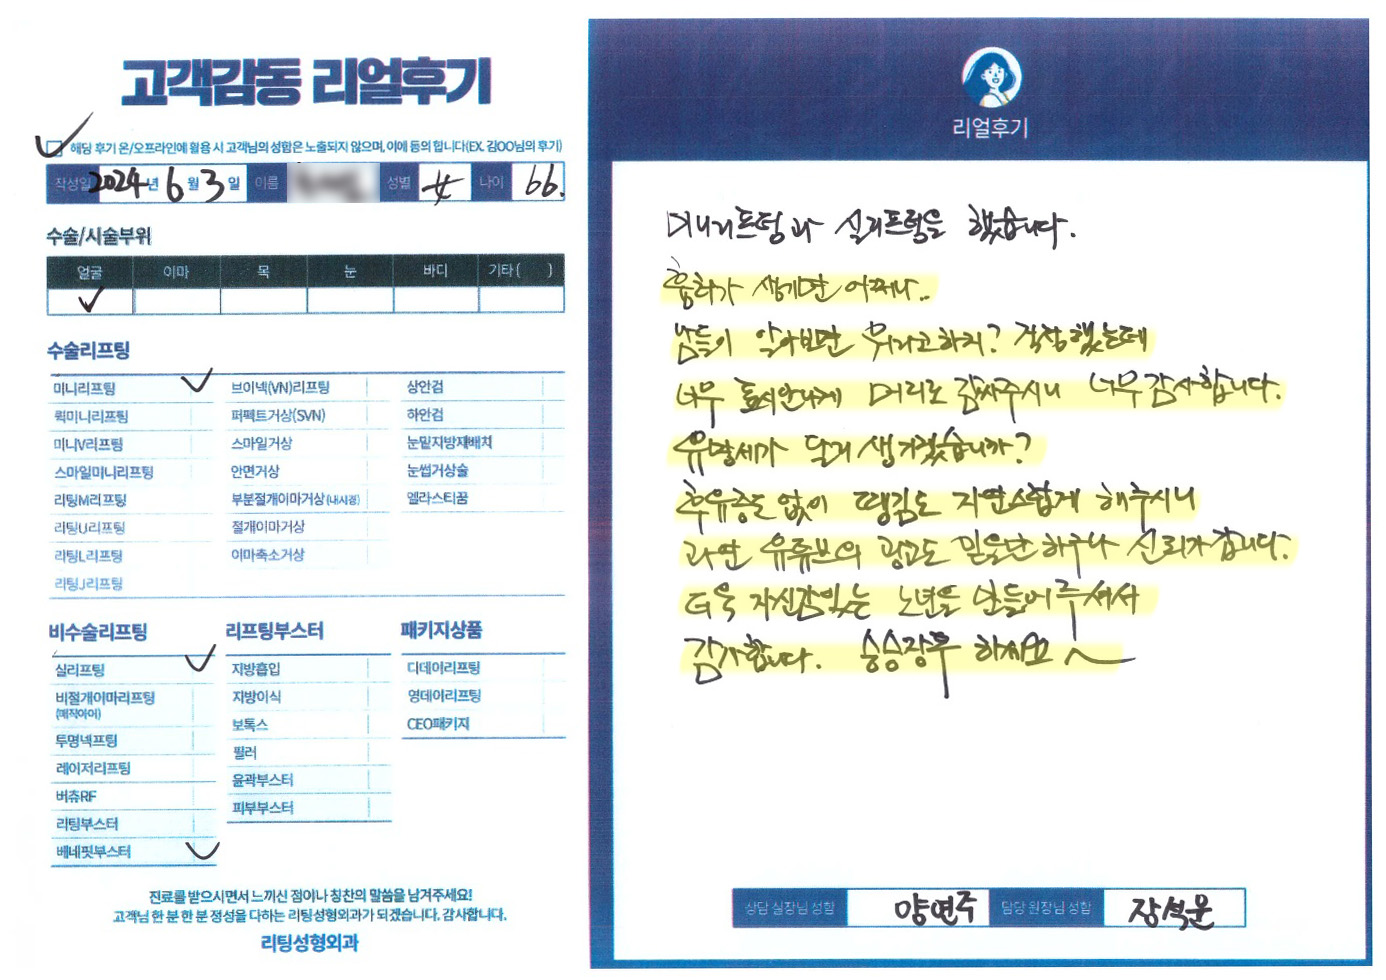 고객감동 리얼후기
해당 후기 온/오프라인에 활용 시 고객님의 성함은 노출되지 않으며, 이에 동의 합니다(EX. 김OO님의 후기)
작성일 2024년 6월 3일 이름 성별 女 나이 66.
수술/시술부위
얼굴 이마 목 눈 바디 기타( )
수술리프팅
미니리프팅 브이넥(VN)리프팅 상안검
퀵미니리프팅 퍼펙트거상(SVN) 하안검
미니V리프팅 스마일거상 눈밑지방재배치
스마일미니리프팅 안면거상 눈썹거상술
리팅M리프팅 부분절개이마거상(내시경) 엘라스티꿈
리팅U리프팅 절개이마거상
리팅L리프팅 이마축소거상
리팅J리프팅
비수술리프팅 리프팅부스터 패키지상품
실리프팅 지방흡입 디데이리프팅
비절개이마리프팅 지방이식 영데이리프팅
(매직아이) 보톡스 CEO패키지
투명넥프팅 필러
레이저리프팅 윤곽부스터
버츄RF 피부부스터
리팅부스터
베네핏부스터
진료를 받으시면서 느끼신 점이나 칭찬의 말씀을 남겨주세요!
고객님 한 분 한 분 정성을 다하는 리팅성형외과가 되겠습니다. 감사합니다.
리팅성형외과
리얼후기
미니리프팅과 실리프팅을 했습니다.
흉터가 생기면 어쩌나..
남들이 알아보면 뭐라고하지? 걱정했는데
너무 표시안나게 머리로 감싸주시니 너무 감사합니다.
유명세가 달리 생기겠습니까?
후유증도 없이 땡김도 자연스럽게 해주시니
과연 유튜브의 광고도 믿을만 하구나 신뢰가 갑니다.
더욱 자신감있는 노년을 만들어 주셔서
감사합니다. 승승장구 하세요~
상담 실장님 성함 양연주 담당 원장님 성함 장석운